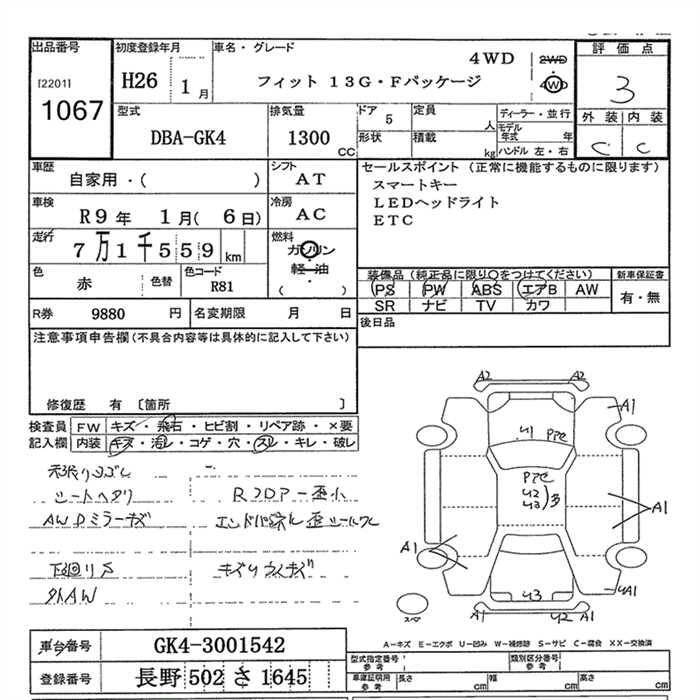 出品番号
[2201]
1067
初度登録年月
H26 1月
車名・グレード
フィット 13G・Fパッケージ
4WD
2WD
4WD
評価点
3
外装 内装
C C
型式
DBA-GK4
排気量
1300 CC
ドア 5
形状
定員 人
積載 kg
ディーラー・並行
モデル年式 年
ハンドル 左・右
車歴
自家用・( )
シフト
AT
車検
R9年 1月( 6日)
冷房
AC
走行
7万1千559km
燃料
ガソリン
軽・油
( )
色
赤
色替
色コード
R81
R券 9880 円
名変期限 月 日
セールスポイント (正常に機能するものに限ります)
スマートキー
LEDヘッドライト
ETC
装備品 (純正品に限り○をつけてください)
PS PW ABS エアB AW
SR ナビ TV カワ
新車保証書
有・無
後日品
注意事項申告欄(不具合内容等は具体的に記入して下さい)
修復歴 有 [箇所 ]
検査員記入欄
FW キズ・飛石・ヒビ割・リペア跡・×要
内装 キズ・汚レ・コゲ・穴・スレ・キレ・破レ
シートヘタリ
Rフロアー歪小
AWDミラーキズ
下回リS
外AW
A2 A2
A1
U1
U2
U3
A1
A1
U3
A1
A1 U2
スペア
A-キズ E-エクボ U-凹み W-補修跡 S-サビ C-腐食 XX-交換済
車台番号 GK4-3001542
登録番号 長野 502 さ 1645
型式指定番号 参考
類別区分番号 参考
車庫証明用 参考
長さ cm
幅 cm
高さ cm